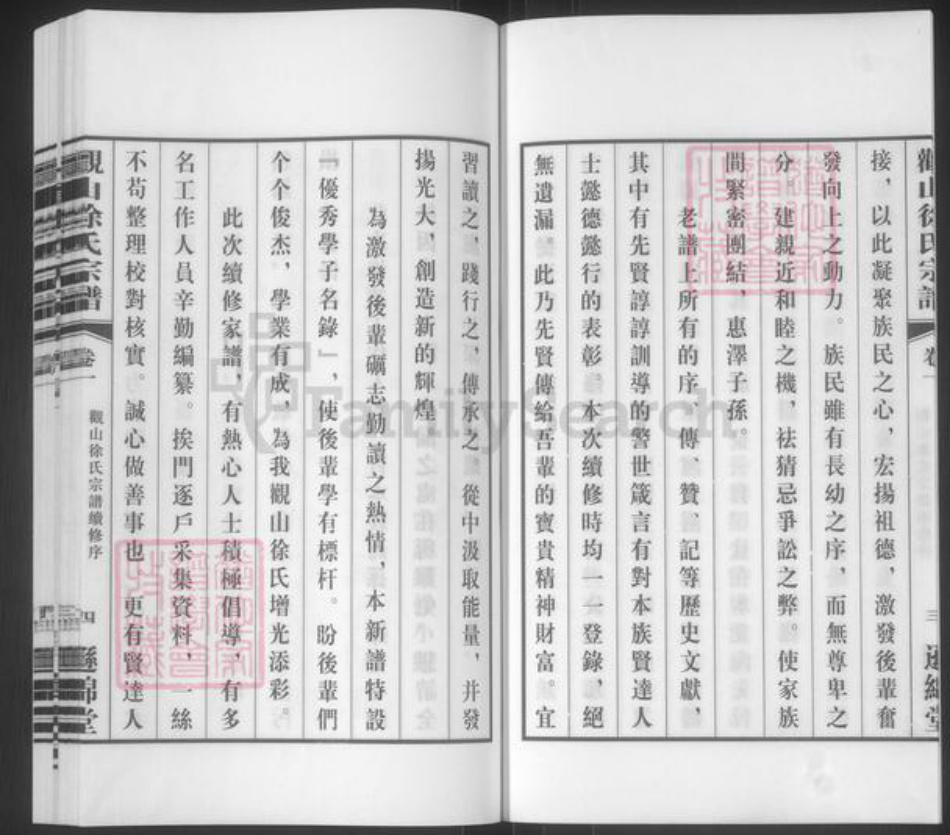 觀山徐氏宗譜
卷一
三
遜綿堂
接，以此凝聚族民之心，宏揚祖德，激發後輩奮
發向上之動力。族民雖有長幼之序，而無尊卑之
分。建親近和睦之機，祛猜忌爭訟之弊。使家族
間緊密團結，惠澤子孫。
老譜上所有的序、傳、贊、記等歷史文獻，
其中有先賢諄諄訓導的警世箴言有對本族賢達人
士懿德懿行的表彰，本次續修時均一一登錄，絕
無遺漏，此乃先賢傳給吾輩的寶貴精神財富。宜
習讀之，踐行之，傳承之，從中汲取能量，并發
揚光大，創造新的輝煌。
為激發後輩礪志勤讀之熱情，本新譜特設
「優秀學子名錄」，使後輩學有標杆。盼後輩們
个个俊杰，學業有成，為我觀山徐氏增光添彩。
此次續修家譜，有熱心人士積極倡導，有多
名工作人員辛勤編纂。挨門逐戶采集資料，一絲
不苟整理校對核實。誠心做善事也，更有賢達人
觀山徐氏宗譜
卷一
觀山徐氏宗譜續修序
四
遜綿堂
FamilySearch